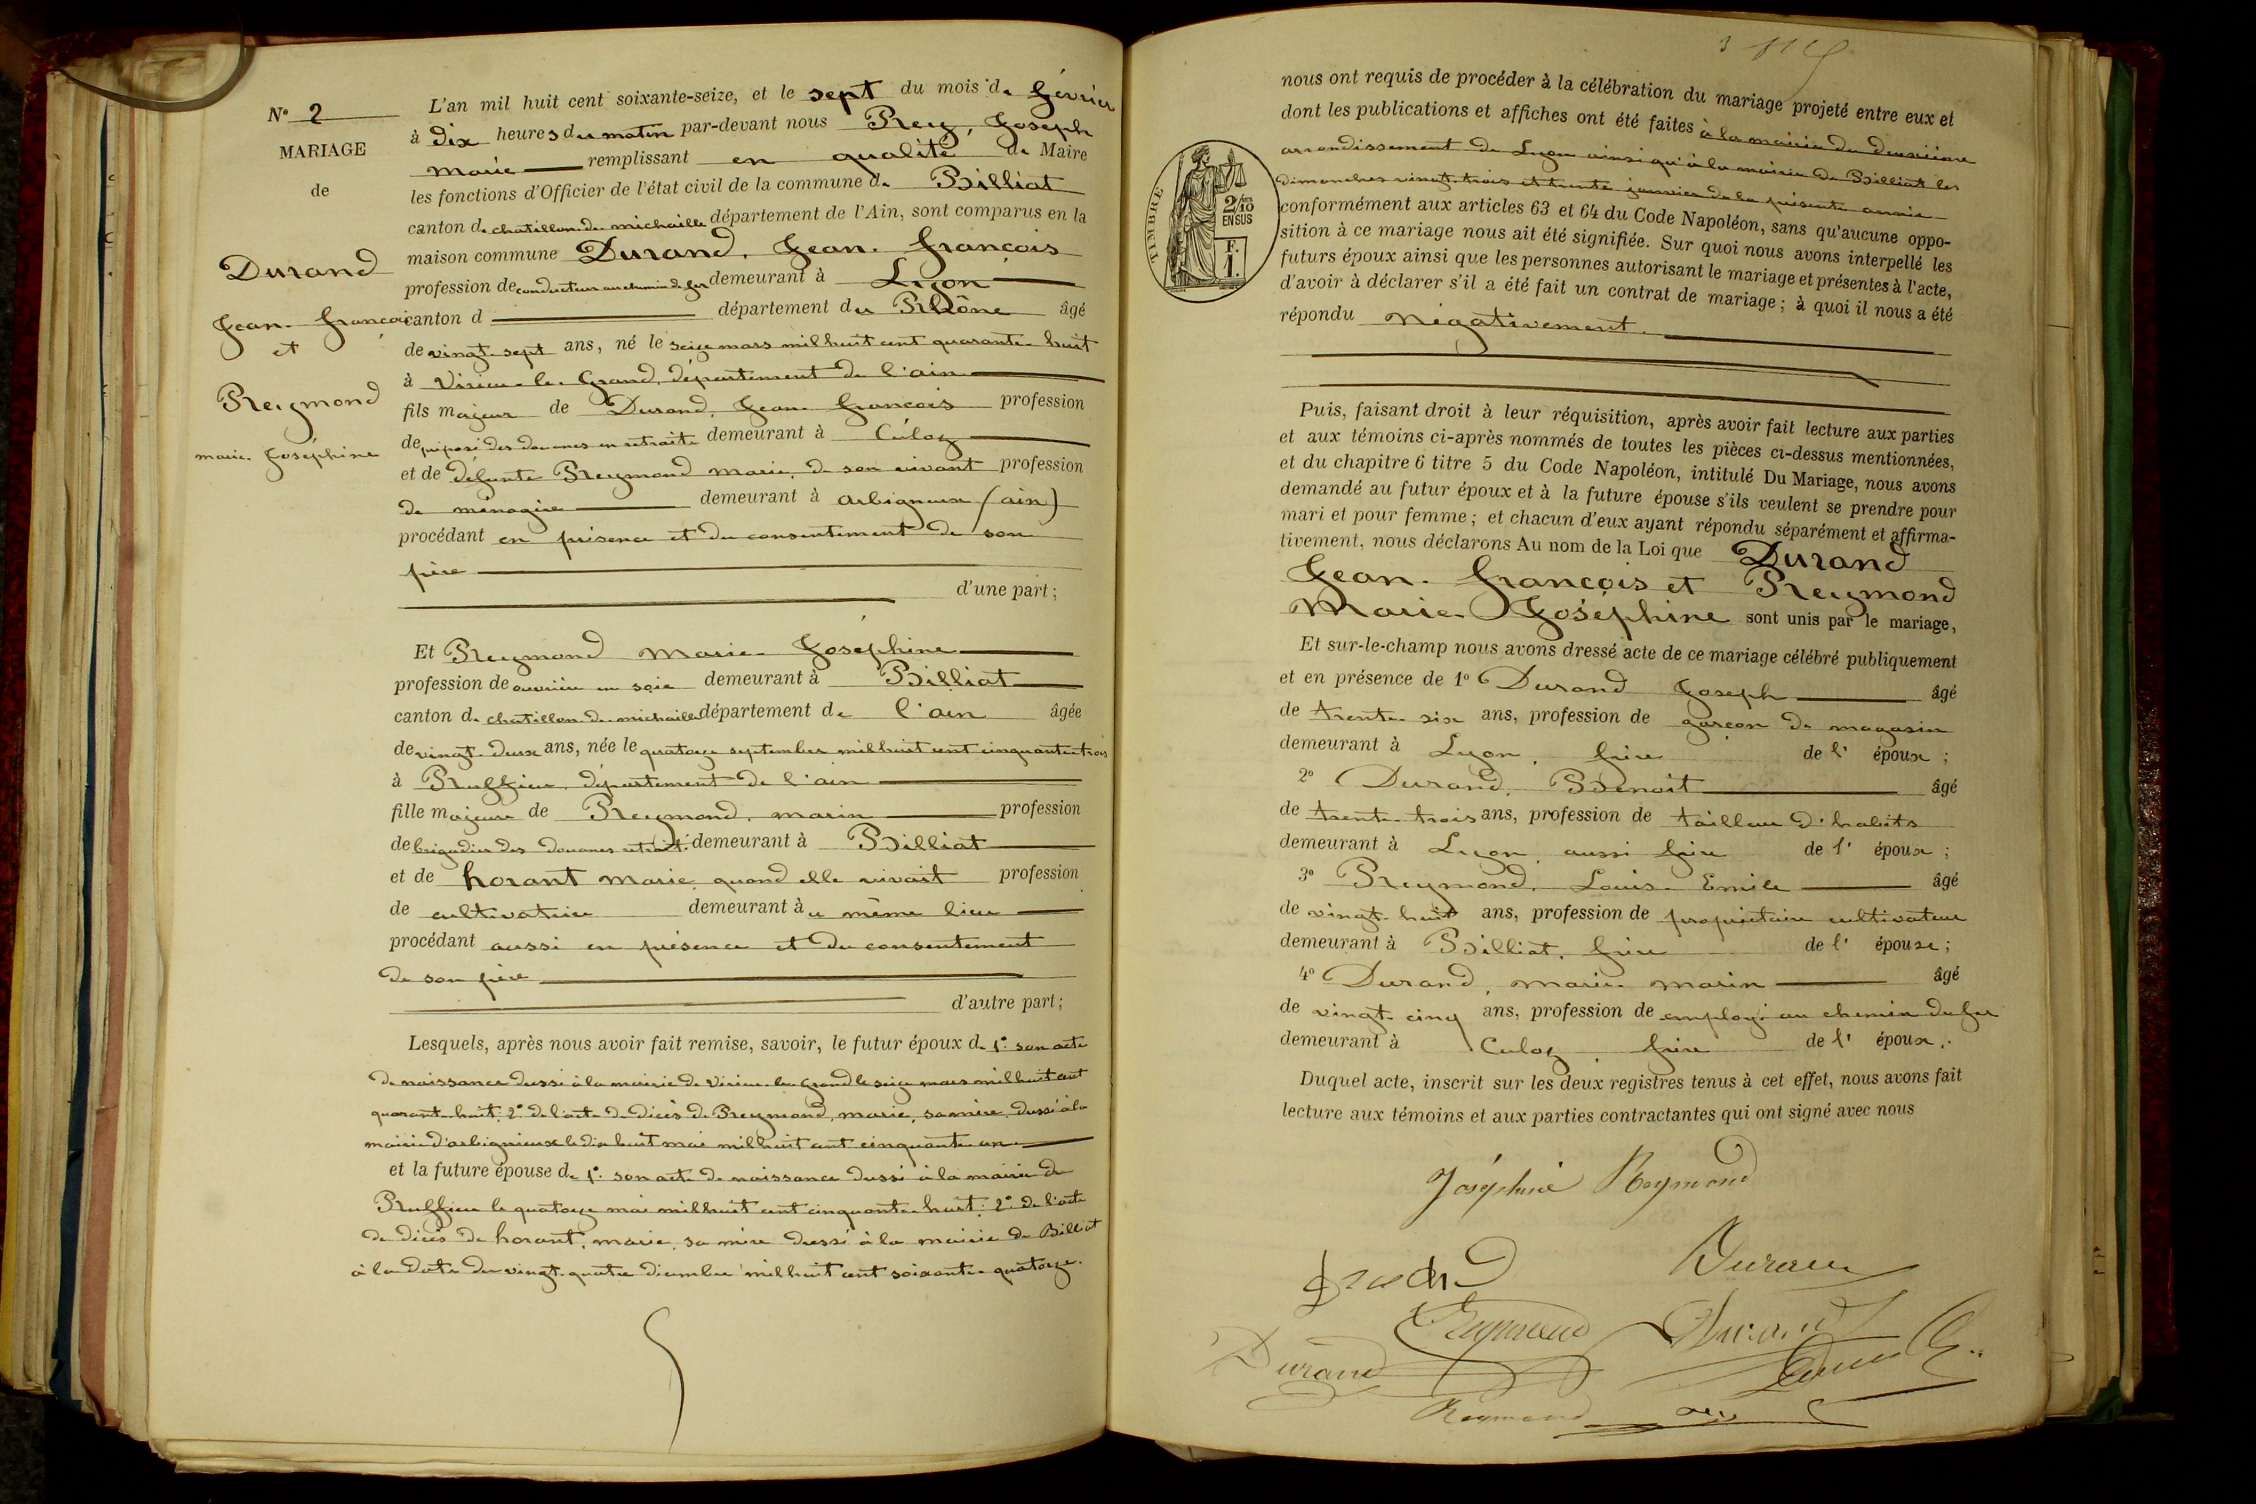 N° 2
MARIAGE
de
Durand
Jean-François
et
Reymond
marie-Joséphine
L'an mil huit cent soixante-seize, et le sept du mois de février
à dix heures du matin par-devant nous Rey, Joseph
Marie remplissant en qualité de Maire
les fonctions d'Officier de l'état civil de la commune de Billiat
canton de chatillon-de-michaille département de l'Ain, sont comparus en la
maison commune Durand, Jean-François
profession de conducteur au chemin de fer demeurant à Lyon
canton d département du Rhône âgé
de vingt-sept ans, né le seize mars mil huit cent quarante-huit
à Virieu-le-Grand, département de l'ain
fils majeur de Durand, Jean-François profession
de préposé des douanes en retraite demeurant à Culoz
et de défunte Reymond marie, de son vivant profession
de ménagère demeurant à arbignieux (ain)
procédant en présence et du consentement de son
père
d'une part;
Et Reymond Marie-Joséphine
profession de ouvrière en soie demeurant à Billiat
canton de chatillon-de-michaille département de l'ain âgée
de vingt-deux ans, née le quatorze septembre mil huit cent cinquante-trois
à Ruffieu, département de l'ain
fille majeure de Reymond, marin profession
de brigadier des douanes retraité demeurant à Billiat
et de horant marie, quand elle vivait profession
de cultivatrice demeurant à u même lieu
procédant aussi en présence et du consentement
de son père
d'autre part;
Lesquels, après nous avoir fait remise, savoir, le futur époux de 1° son acte
de naissance dressé à la mairie de Virieu-le-Grand le seize mars mil huit cent
quarante-huit, 2° de l'acte de décès de Reymond, marie, sa mère, dressé à la
mairie d'arbignieux le dix huit mai mil huit cent cinquante-un
et la future épouse de 1° son acte de naissance dressé à la mairie de
Ruffieu le quatorze mai mil huit cent cinquante-huit: 2° de l'acte
de décès de horant, marie, sa mère dressé à la mairie de Billiat
à la date du vingt-quatre décembre mil huit cent soixante-quatorze.
nous ont requis de procéder à la célébration du mariage projeté entre eux et
dont les publications et affiches ont été faites à la mairie du deuxième
arrondissement de Lyon ainsi qu'à la mairie de Billiat les
dimanches vingt-trois et trente janvier de la présente année
conformément aux articles 63 et 64 du Code Napoléon, sans qu'aucune oppo-
sition à ce mariage nous ait été signifiée. Sur quoi nous avons interpellé les
futurs époux ainsi que les personnes autorisant le mariage et présentes à l'acte,
d'avoir à déclarer s'il a été fait un contrat de mariage; à quoi il nous a été
répondu négativement.
TIMBRE
2/10 EN SUS
F.
1.
Puis, faisant droit à leur réquisition, après avoir fait lecture aux parties
et aux témoins ci-après nommés de toutes les pièces ci-dessus mentionnées,
et du chapitre 6 titre 5 du Code Napoléon, intitulé Du Mariage, nous avons
demandé au futur époux et à la future épouse s'ils veulent se prendre pour
mari et pour femme; et chacun d'eux ayant répondu séparément et affirma-
tivement, nous déclarons Au nom de la Loi que Durand
Jean-François et Reymond
Marie-Joséphine sont unis par le mariage,
Et sur-le-champ nous avons dressé acte de ce mariage célébré publiquement
et en présence de 1° Durand Joseph âgé
de trente-six ans, profession de garçon de magasin
demeurant à Lyon, frère de l' époux;
2° Durand, Benoit âgé
de trente-trois ans, profession de tailleur d'habits
demeurant à Lyon, aussi frère de l' époux;
3° Reymond, Louis-Emile âgé
de vingt-huit ans, profession de propriétaire cultivateur
demeurant à Billiat, frère de l' épouse;
4° Durand, marie-marin âgé
de vingt-cinq ans, profession de employé au chemin de fer
demeurant à Culoz, frère de l' époux.
Duquel acte, inscrit sur les deux registres tenus à cet effet, nous avons fait
lecture aux témoins et aux parties contractantes qui ont signé avec nous
Joséphine Reymond
Durand
Reymond Durand
Durand
Reymond Rey